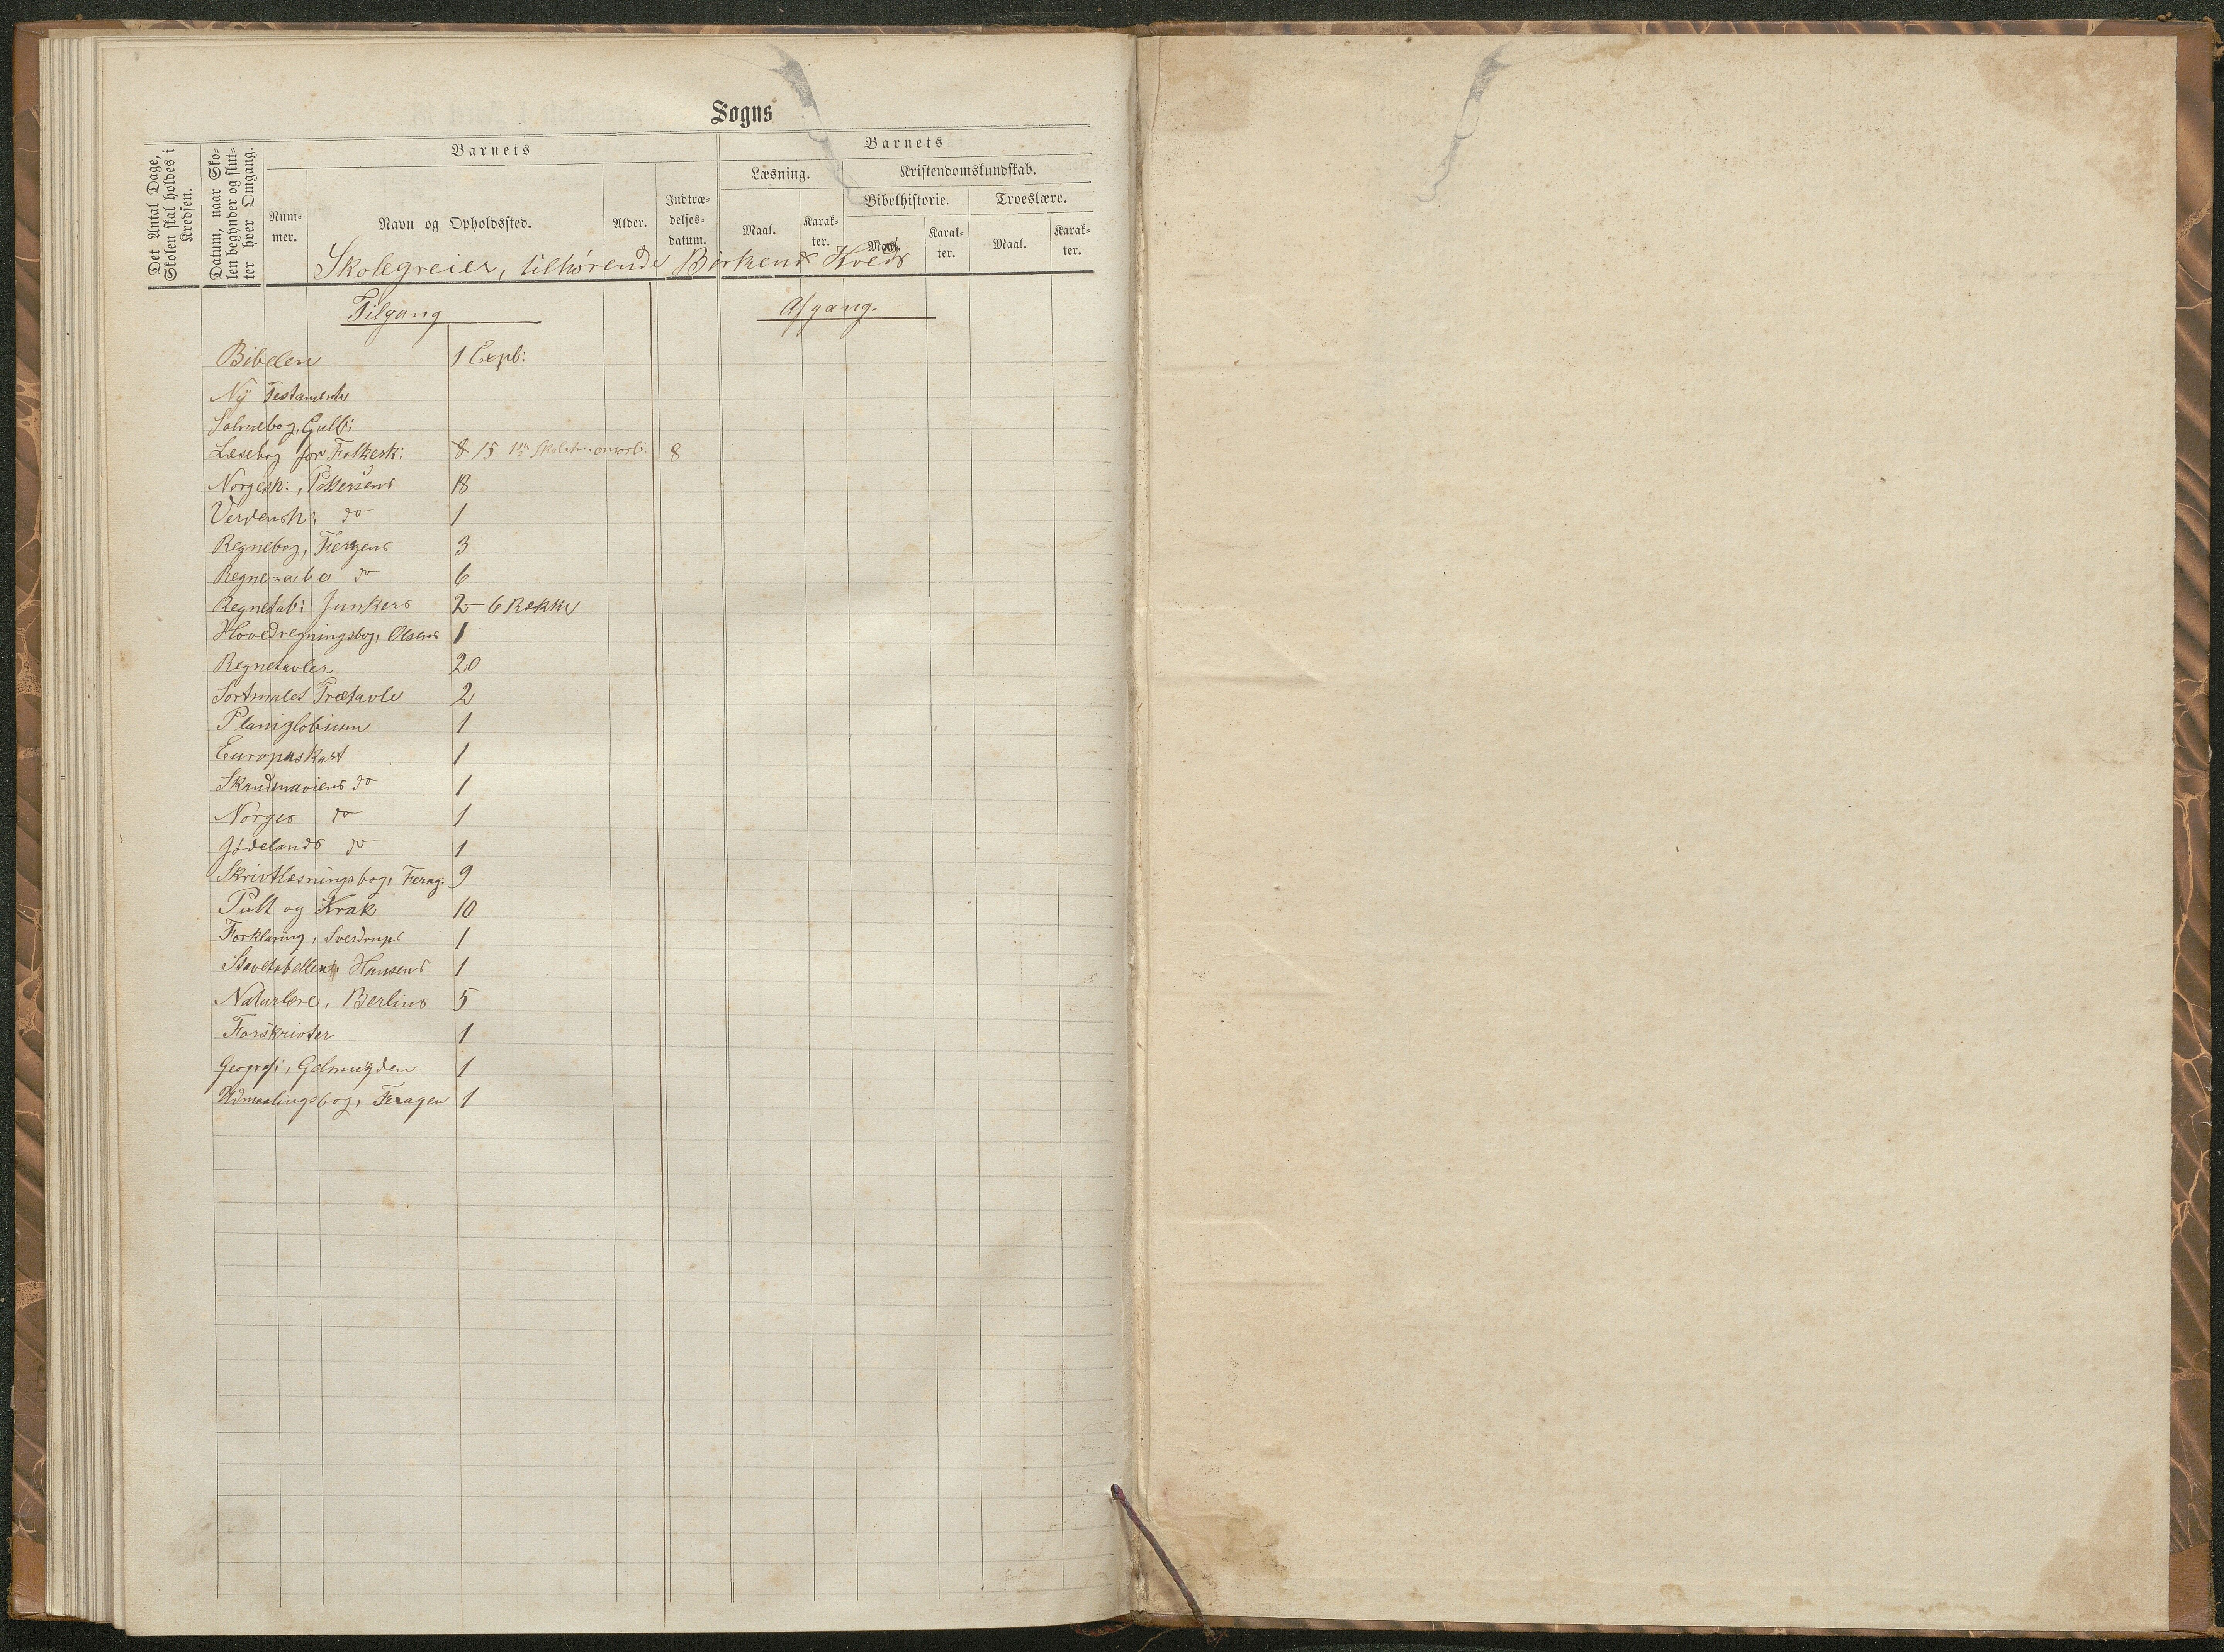 Sogns
Det Antal Dage,
Skolen skal holdes i
Kredsen.
Datum, naar Sko-
len begynder og slut-
ter hver Omgang.
Barnets
Num-
mer.
Navn og Opholdssted.
Alder.
Indtræ-
delses-
datum.
Barnets
Læsning.
Maal.
Karak-
ter.
Kristendomskundskab.
Bibelhistorie.
Maal.
Karak-
ter.
Troeslære.
Maal.
Karak-
ter.
Skolegreier, tilhørende Birkens Kreds
Tilgang
Afgang.
Bibelen 1 Expl:
Ny Testamente
Salmebog, Gulb:
Læsebog for Folkesk: 8 15 8
Norgesh:, Pettersens 18
Verdensh: do 1
Regnebog, Fergens 3
do 6
Regnetab: Junkers 2 - 6 Række
Hovedregningsbog, Olsens 1
Regnetavler 20
Sortmalet Trætavle 2
Planiglobium 1
Europaskart 1
Skandinaviens do 1
Norges do 1
Jødelands do 1
Skriftlæsningsbog, Ferag: 9
Pult og Krak 10
Forklaring, Sverdrups 1
Stavetabeller, Hansens 1
Naturlære, Berlins 5
Forskrivter 1
Geografi, Gelmuyden 1
Udmaalingsbog, Feragen 1